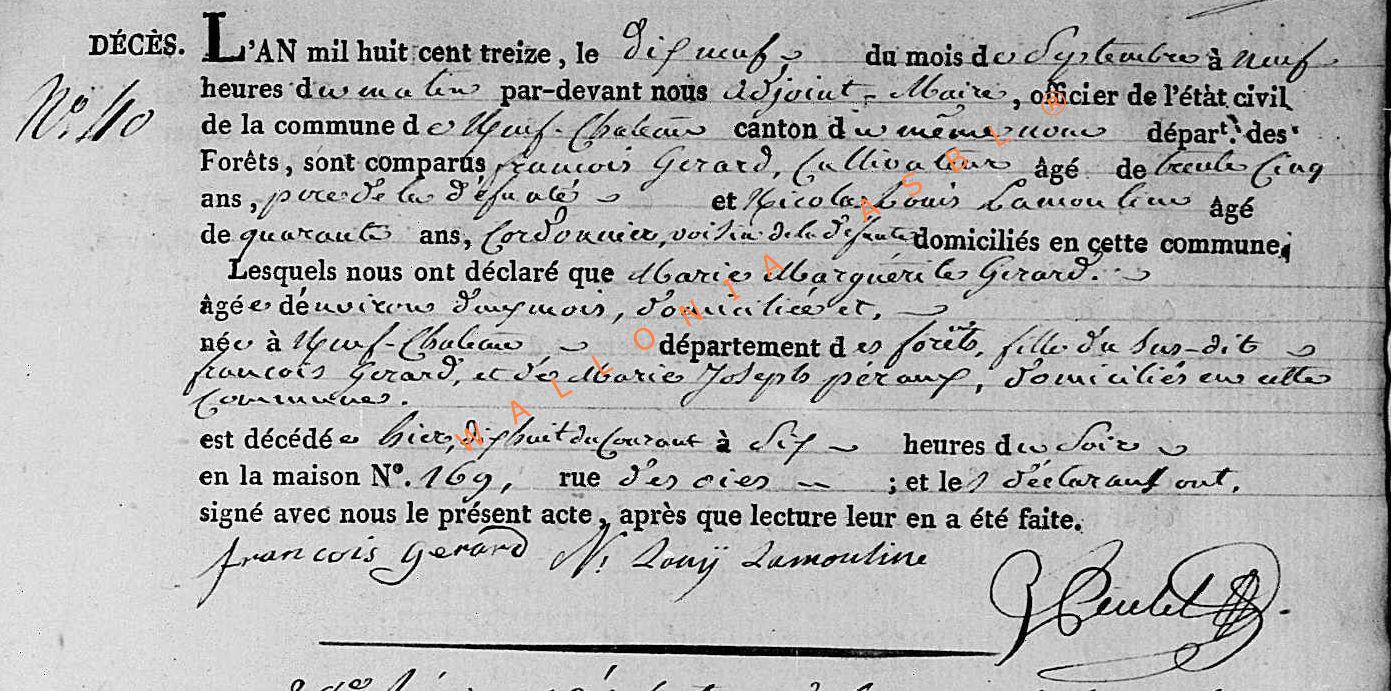 DÉCÈS. L'AN mil huit cent treize, le dix neuf du mois de Septembre à neuf
N.° 40 heures du matin par-devant nous adjoint-Maire, officier de l'état civil
de la commune de Neuf-Chateau canton du même nom départ.t des
Forêts, sont comparus françois Gerard, Cultivateur âgé de trente Cinq
ans, pere de la défunte et Nicolas Louis Lamouline âgé
de quarante ans, Cordonnier, voisin de la défunte domiciliés en cette commune;
Lesquels nous ont déclaré que Marie Marguerite Gerard.
âgée d'environ mois, domiciliée et,
née à Neuf-Chateau, département des forêts, fille du Sus-dit
françois Gerard, et de Marie Joseph domiciliés en cette
Commune.
est décédée hier, dixhuit du Courant à Six heures du Soir
en la maison N.° 169, rue des oies ; et les déclarans ont,
signé avec nous le présent acte, après que lecture leur en a été faite.
francois Gerard N: Louÿ Lamouline
WALLONIA ASBL ®